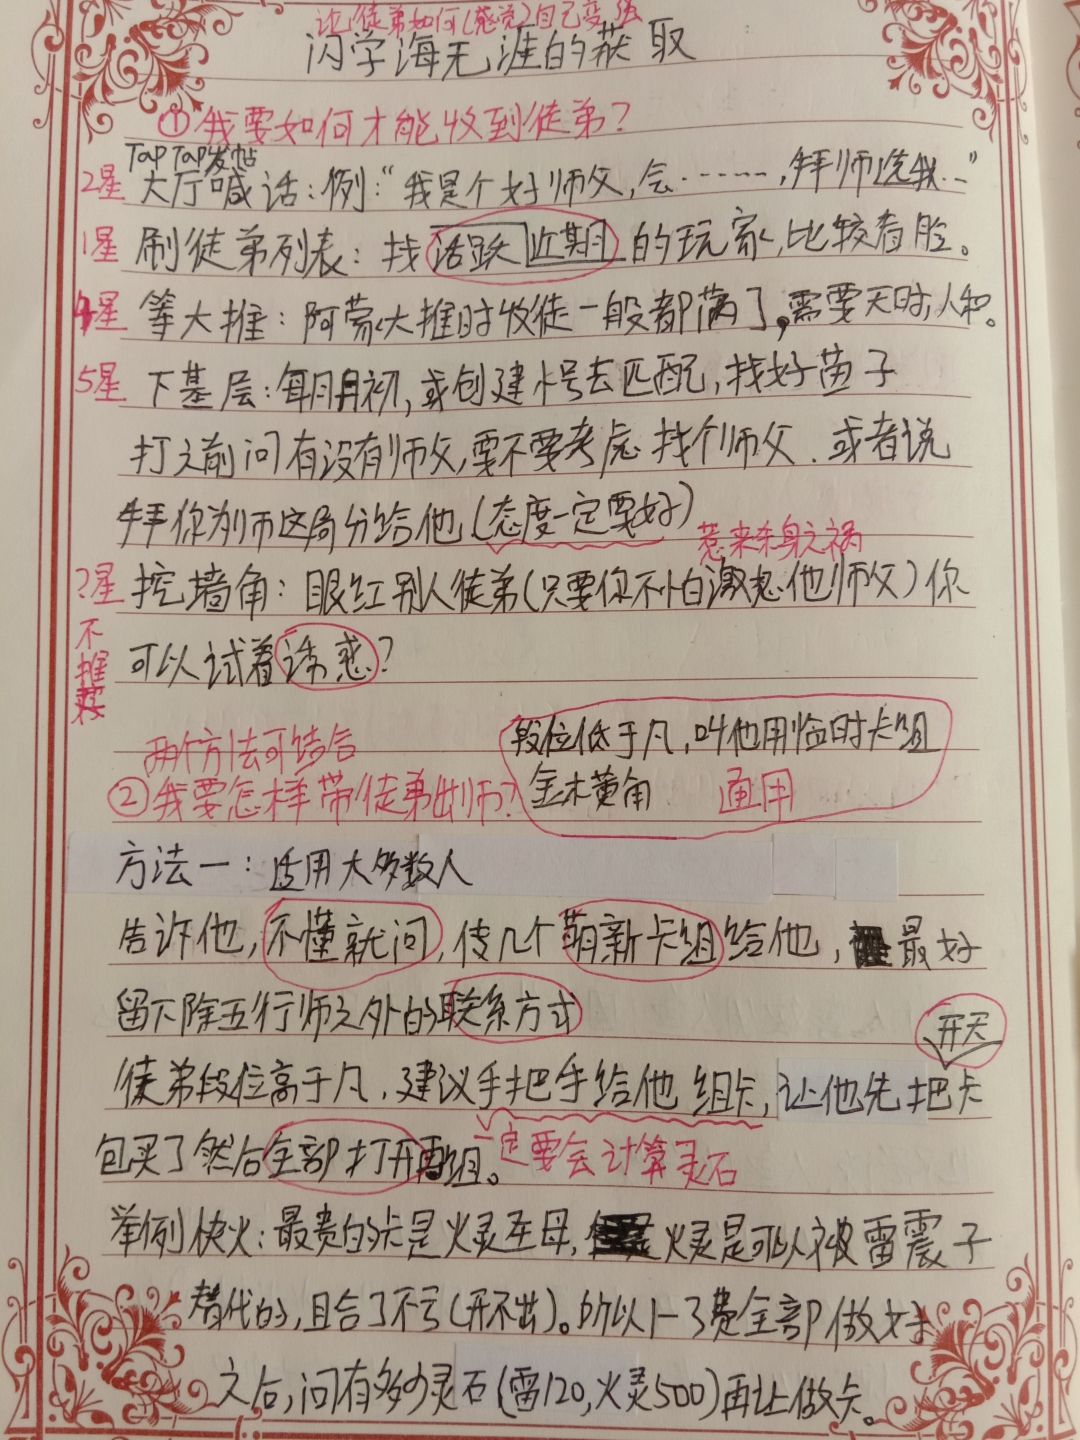 论徒弟如何(感觉)自己变强
闪学海无涯的获取
①我要如何才能收到徒弟?
TapTap发帖
2星 大厅喊话:例:“我是个好师父,会……,拜师选我…”
1星 刷徒弟列表:找活跃近期的玩家,比较看脸。
4星 等大推:阿蒙大推时收徒一般都满了,需要天时,人和。
5星 下基层:每月月初,或创建小号去匹配,找好苗子
打之前问有没有师父,要不要考虑找个师父.或者说
拜你为师这局分给他,(态度一定要好)
惹来杀身之祸
?星 挖墙角:眼红别人徒弟(只要你不怕激怒他师父)你
不推荐
可以试着诱惑?
两个方法可结合
段位低于凡,叫他用临时卡组
②我要怎样带徒弟出师?
金木黄角 通用
方法一:适用大多数人
告诉他,不懂就问,传几个萌新卡组给他,最好
留下除五行师之外的联系方式
开天
徒弟段位高于凡,建议手把手给他组卡,让他先把卡
包买了然后全部打开再组。一定要会计算灵石
举例快火:最贵的卡是火灵圣母,火灵是可以被雷震子
替代的,且合了不亏(开不出)。所以1-3费全部做好
之后,问有多少灵石(雷120,火灵500)再让做卡。